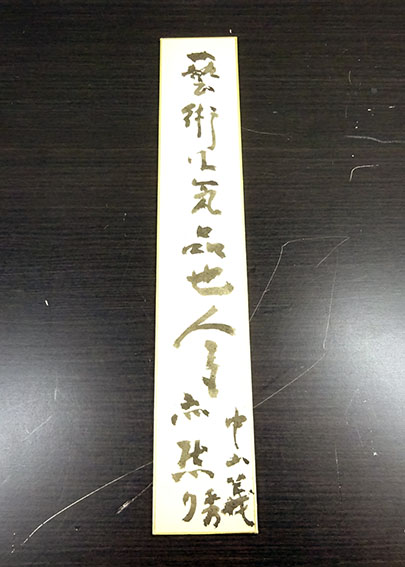 藝術は気品也人生亦然り
中山義秀